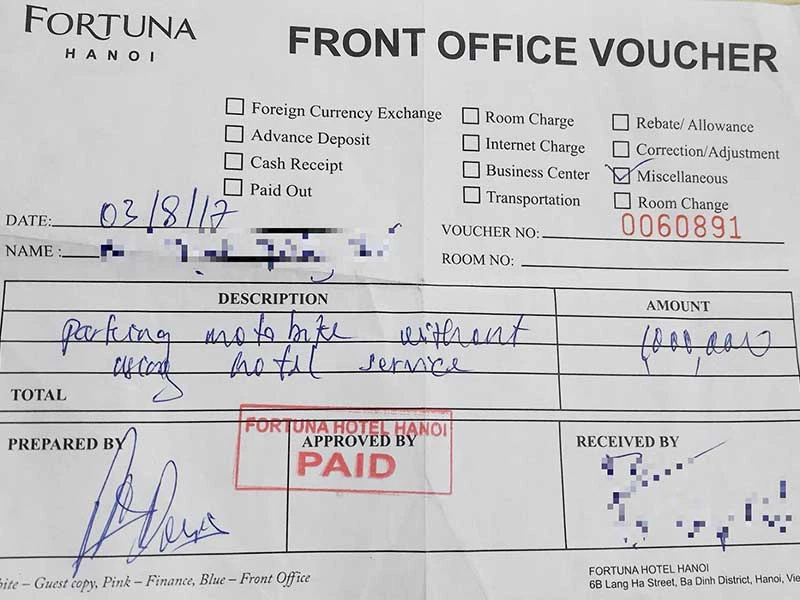 FORTUNA
HANOI
FRONT OFFICE VOUCHER
Foreign Currency Exchange
Advance Deposit
Cash Receipt
Paid Out
Room Charge
Internet Charge
Business Center
Transportation
Rebate/ Allowance
Correction/Adjustment
Miscellaneous
Room Change
DATE: 03/8/17
NAME :
VOUCHER NO: 0060891
ROOM NO:
DESCRIPTION AMOUNT
parking motobike without 1,000,000
using hotel service
TOTAL
PREPARED BY
APPROVED BY
RECEIVED BY
FORTUNA HOTEL HANOI
PAID
ite – Guest copy, Pink – Finance, Blue – Front Office
FORTUNA HOTEL HANOI
6B Lang Ha Street, Ba Dinh District, Hanoi, Vie